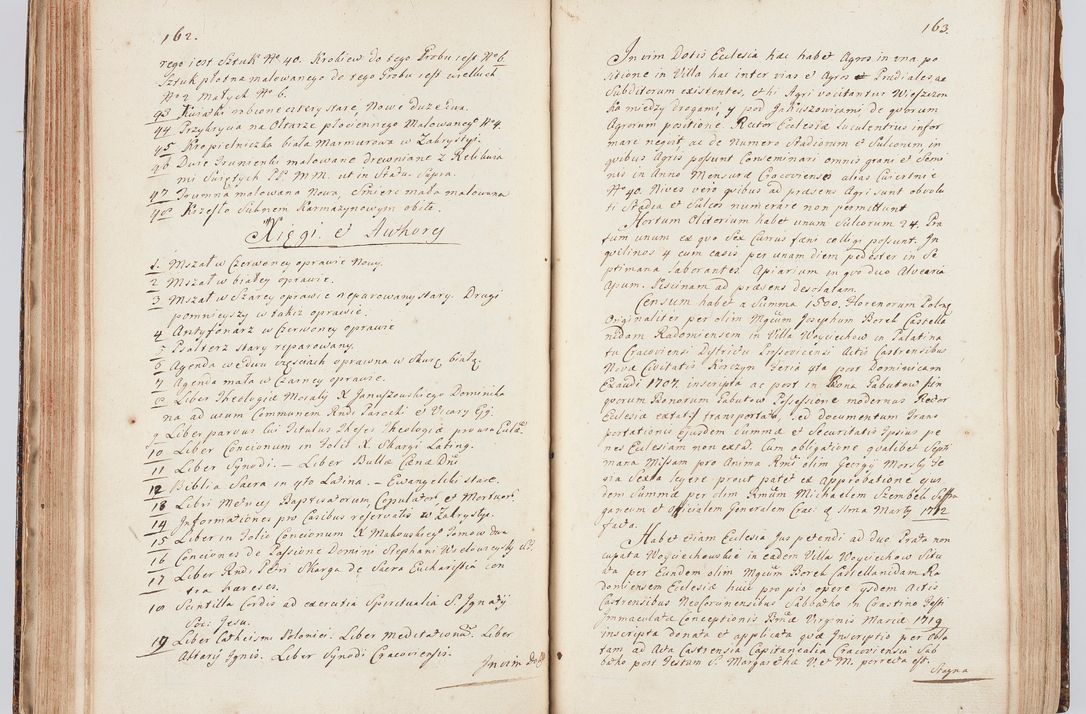 162.
rego jest Sztuk No 40. Krobiew do tego Grobu jest No 6.
Sztuk płotna malowanego do tego Grobu jest wielkich
No 2 małych No 6.
43 Kurałki robione cztery stare, Nowe duże Dwa.
44 Przykrycia na Ołtarze płociennego Malowaney No 4.
45 Kropielniczka biała Marmurowa w Zakrystyi.
46 Dwie Trunienki malowane drewniane z Relikwia
mi Swiętych PP. M M. ut in Status Supra.
47 Trumna malowana Nowa, Smierc mała malowana
48 Krzesło Suknem Karmazynowym obite.
Xięgi et Authorej
1. Mszał w Czerwoney oprawie Nowy.
2 Mszał w białey oprawie.
3 Mszał w Szarey oprawie reparowany stary. Drugi
pomnieyszy w takiz oprawie.
4 Antyfonarz w Czerwoney oprawie
5 Psałterz stary reparowany.
6 Agenda w Dwu częsciach oprawna w Skurę białą.
7 Agenda mała w Czarney oprawie.
8 Liber Theologiæ Moralis X Januszowskiego Dominika
na ad usum Communem Rndi Parochi et Vicary Gg.
9 Liber parvus Cui Titulus Theses Theologiæ pro usu Eccla.
10 Liber Concionum in Folio X. Skargi Lating.
11 Liber Synodi. – Liber Bullæ Cænæ Dni
12 Biblia Sacra in 4to Latina. – Ewangeliki stare.
13 Libri Metrices Baptisatorum, Copulator et Mortuor.
14 Informationes pro Casibus reservatis w Zakrystyi.
15 Liber in Folio Concionum X Makowskiego Tomow dwa
16 Conciones de Passione Domini Stephani Wielowieyski SJ.
17 Liber Rndi Petri Skarga de Sacra Eucharistia con
tra hæreses.
18 Scintilla Cordis ad exercitia Spiritualia S. Ignatij
Soc: Jesu.
19 Liber Cathecismi Polonici. Liber Meditationu. Liber
Altarij Ignis. Liber Synodi Cracoviensis.
In vim Dotis
163.
In vim Dotis Eclesia hac habet Agros in una po
sitione in Villa hac inter vias et Agros Prædiales, ac
Subditorum existentes, et hi Agri vocitantur Wieszczon
ka między Drogami, y pod Januszowicami, de quorum
Agrorum positione Rector Eclesiæ luculentius infor
mare nequit, ac de Numero Stadiorum et Sulconem in
quibus Agris possunt Conseminari omnis grani et Semi
nis in Anno Mensuræ Cracoviensis alias Cwiertnie
No 40. Nives vero quibus ad præsens Agri sunt obvolu
ti Stadia et Sulcos numerare non permittunt.
Hortum Olitorium habet unam Sulcorum 24. Pra
tum unum ex quo Sex Currus fæni colligi possunt. In
quilinos 4 cum casis per unam diem pedester in Se
ptimana laborantes. Apiarium in quo duo Alvearia
Apum. Piscinam ad præsens desolatam.
Censum habet a Summa 1500. Florenorum Polne
Originalites per olim Mgcum Josephum Borek Castella
nidam Radomiensem in Villa Woyciechow in Palatina
tu Cracoviensi Districtu Proszovicensi Actis Castrensibus
Novæ Civitatis Korczyn Feria 4ta post Dominicam
Exaudi 1707. inscripta ac post in Bona Pałutow sin
quorum Bonorum Pałutow Possessione modernus Rector
Eclesiæ extat transportata, sed documentum Trans
portationis ejusdem Summæ et Securitatis Ipsius pe
nes Eclesiam non extat. Cum obligatione qualibet Septi
mana Missam pro Anima Rndi olim Georgij Morsky Fe
ria Sexta legere prout patet ex approbatione ejus
dem Summæ per olim Rmum Michaelem Szembek Suffra
ganeum et Officialem Generalem Crac: d 8va Marty 1712
facta.
Habet etiam Eclesia Jus petendi ad duo Prata non
cupata Woyciechowskie in eadem Villa Woyciechow Situ
ata per Eundem olim Mgcum Borek Castellanidam Ra
domiensem Eclesiæ huic pro pio opere ysdem Actis
Castrensibus Neoforumensibus Sabbatho in Crastino Festi
Immaculatæ Conceptionis Bmæ Virginis Mariæ 1719
inscripta donata et applicata quæ Inscriptio per Obla
tam ad Acta Castrensia Capitanealia Cracoviensia Sab
batho post Festum S. Margarethæ V. et M. porrecta est.
Stayna